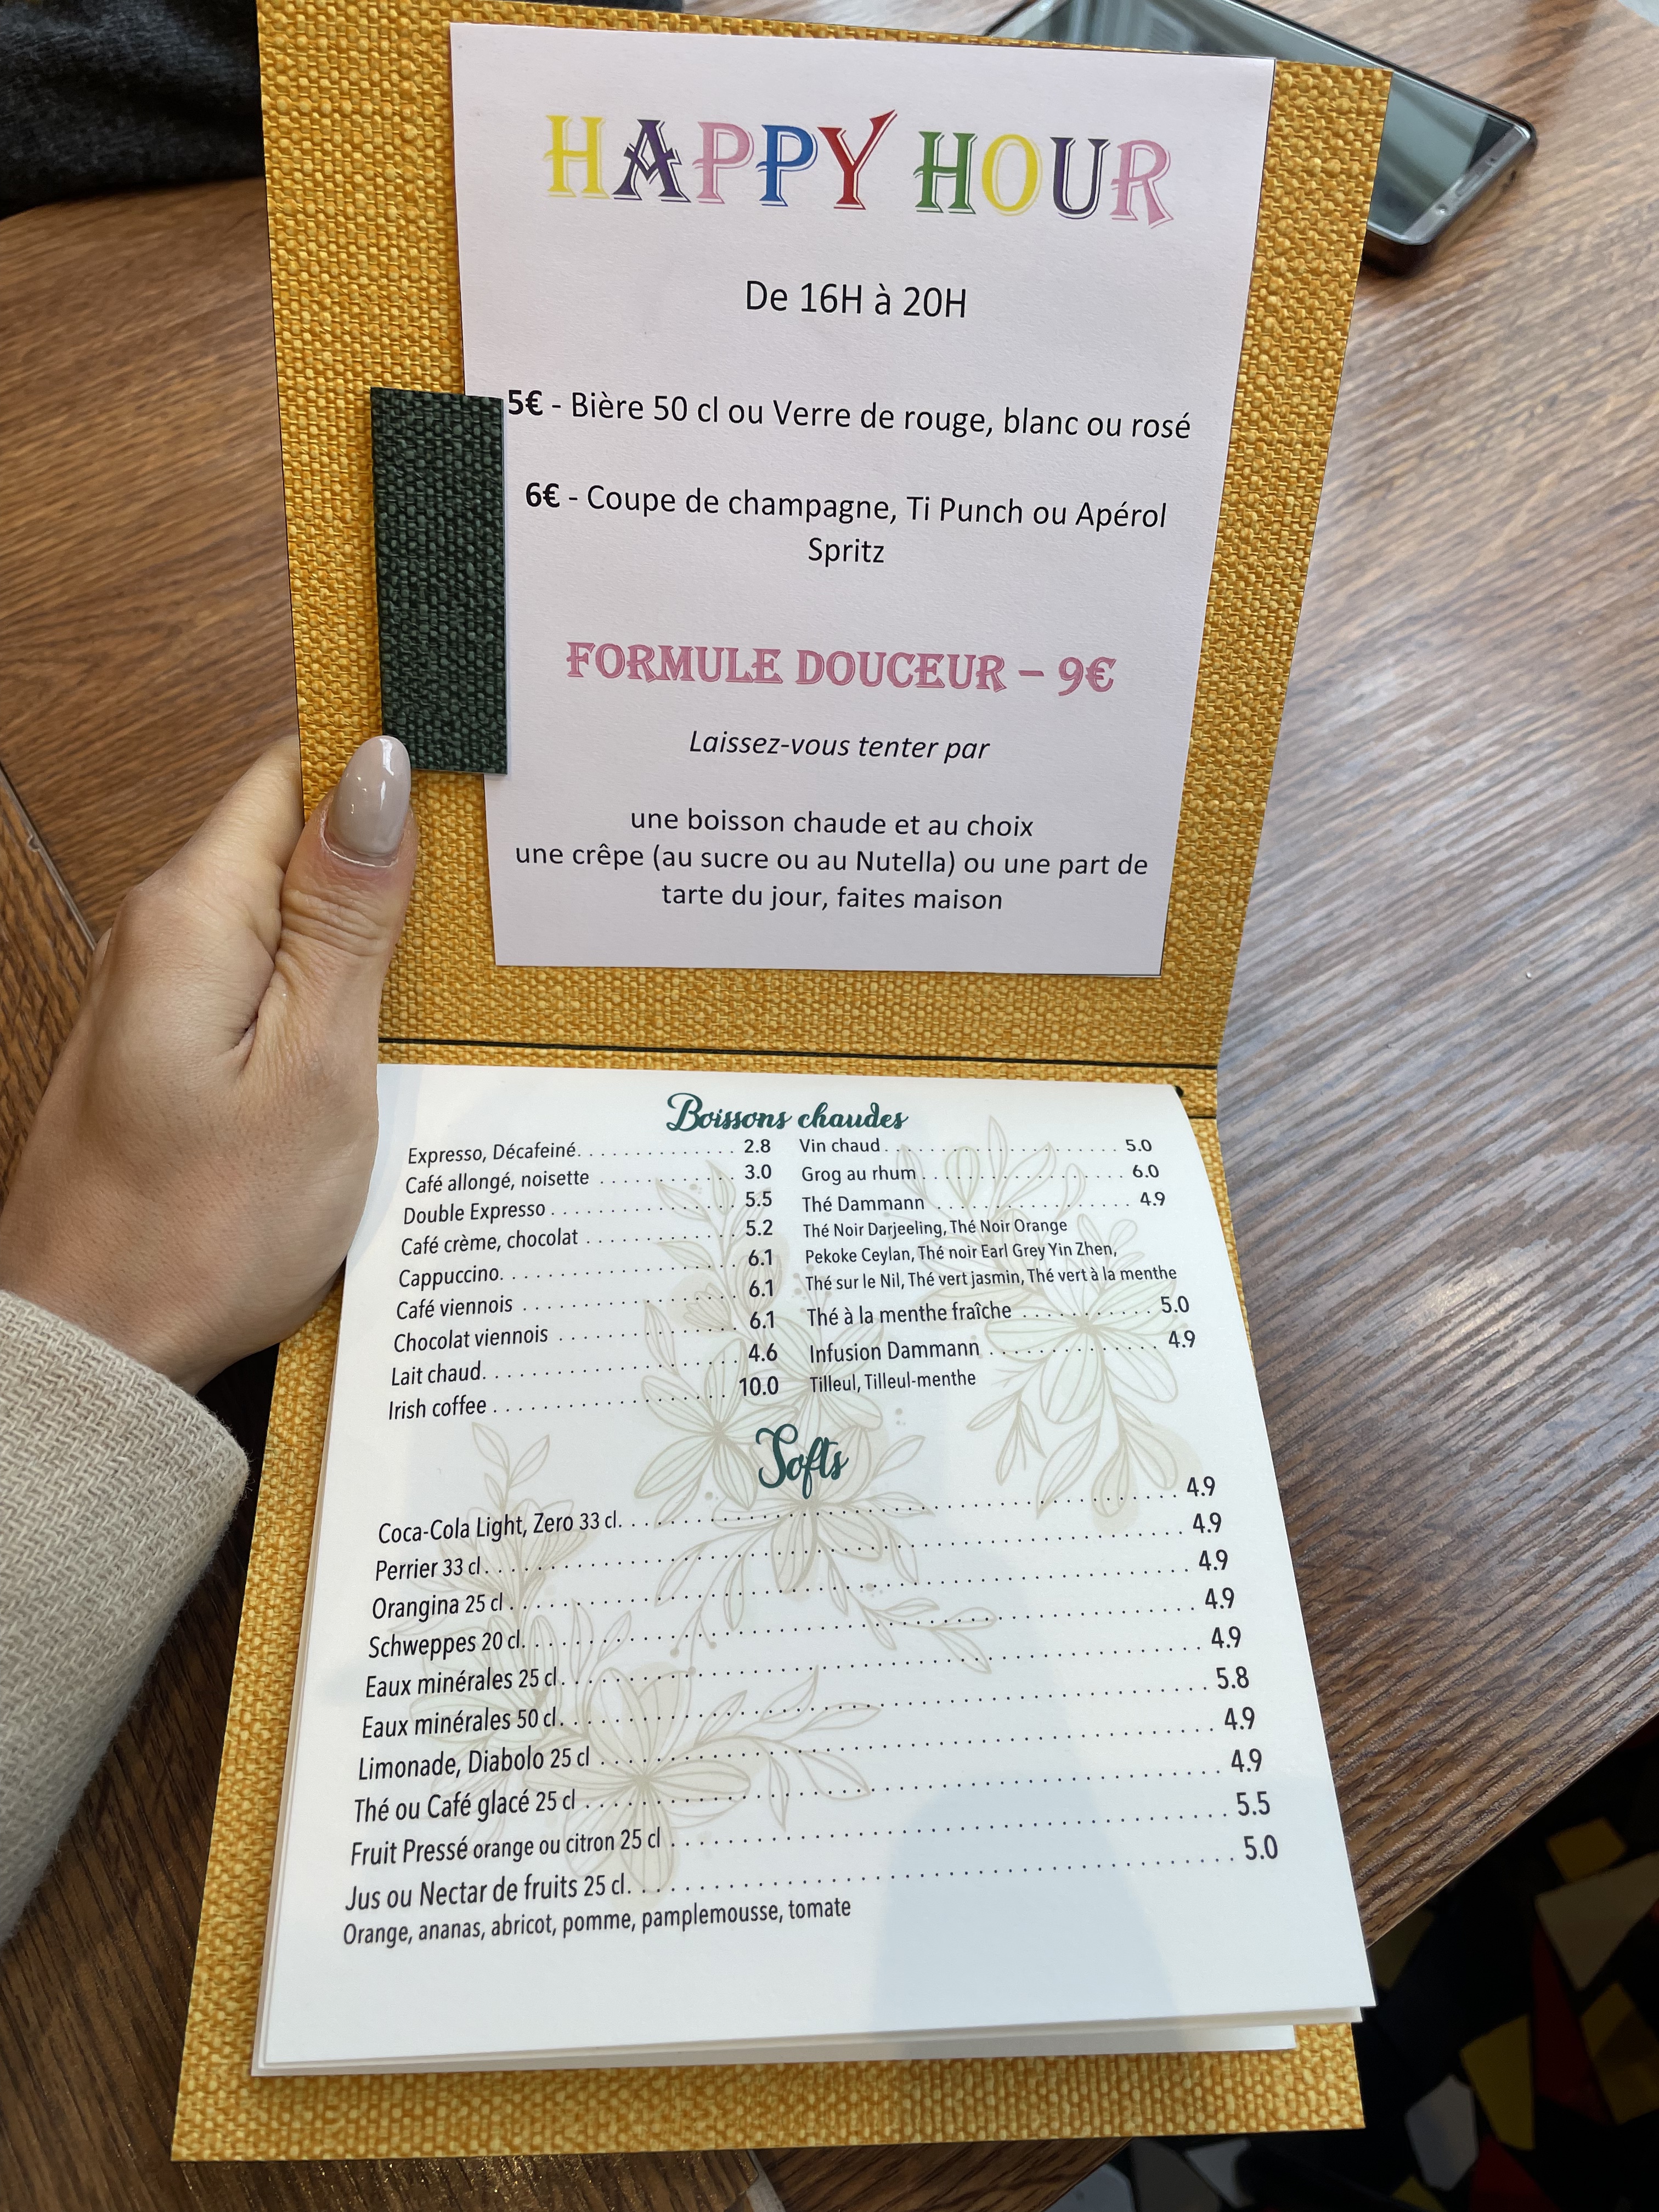 HAPPY HOUR
De 16H à 20H
5€ - Bière 50 cl ou Verre de rouge, blanc ou rosé
6€ - Coupe de champagne, Ti Punch ou Apérol
Spritz
FORMULE DOUCEUR – 9€
Laissez-vous tenter par
une boisson chaude et au choix
une crêpe (au sucre ou au Nutella) ou une part de
tarte du jour, faites maison
Boissons chaudes
Expresso, Décafeiné. . . . . . . . . . . . . . . 2.8
Café allongé, noisette . . . . . . . . . . . . . 3.0
Double Expresso . . . . . . . . . . . . . . . . . 5.5
Café crème, chocolat . . . . . . . . . . . . . . 5.2
Cappuccino. . . . . . . . . . . . . . . . . . . . . 6.1
Café viennois . . . . . . . . . . . . . . . . . . . 6.1
Chocolat viennois . . . . . . . . . . . . . . . . 6.1
Lait chaud. . . . . . . . . . . . . . . . . . . . . 4.6
Irish coffee . . . . . . . . . . . . . . . . . . . . 10.0
Vin chaud . . . . . . . . . . . . . . . . . . . . . 5.0
Grog au rhum . . . . . . . . . . . . . . . . . . . 6.0
Thé Dammann . . . . . . . . . . . . . . . . . . 4.9
Thé Noir Darjeeling, Thé Noir Orange
Pekoke Ceylan, Thé noir Earl Grey Yin Zhen,
Thé sur le Nil, Thé vert jasmin, Thé vert à la menthe
Thé à la menthe fraîche . . . . . . . . . . . 5.0
Infusion Dammann . . . . . . . . . . . . . . 4.9
Tilleul, Tilleul-menthe
Softs
Coca-Cola Light, Zero 33 cl. . . . . . . . . . . . . . . . . . . . . . . . 4.9
Perrier 33 cl. . . . . . . . . . . . . . . . . . . . . . . . . . . . . . . . . 4.9
Orangina 25 cl . . . . . . . . . . . . . . . . . . . . . . . . . . . . . . . 4.9
Schweppes 20 cl. . . . . . . . . . . . . . . . . . . . . . . . . . . . . . 4.9
Eaux minérales 25 cl. . . . . . . . . . . . . . . . . . . . . . . . . . . . 4.9
Eaux minérales 50 cl. . . . . . . . . . . . . . . . . . . . . . . . . . . . 5.8
Limonade, Diabolo 25 cl . . . . . . . . . . . . . . . . . . . . . . . . . 4.9
Thé ou Café glacé 25 cl . . . . . . . . . . . . . . . . . . . . . . . . . . 4.9
Fruit Pressé orange ou citron 25 cl . . . . . . . . . . . . . . . . . . . 5.5
Jus ou Nectar de fruits 25 cl. . . . . . . . . . . . . . . . . . . . . . . 5.0
Orange, ananas, abricot, pomme, pamplemousse, tomate